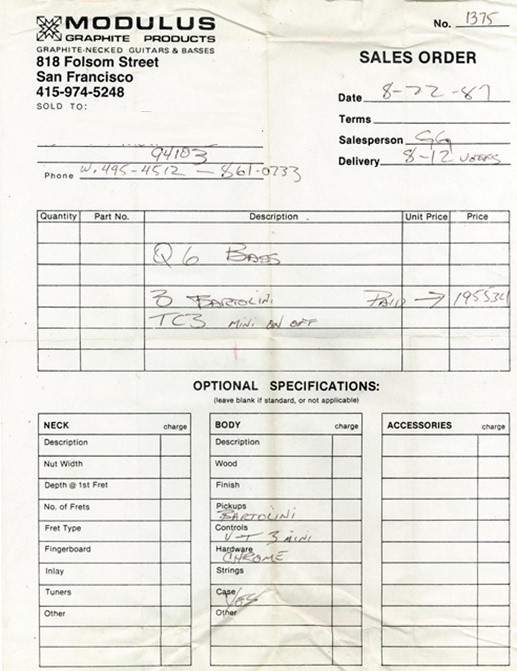 MODULUS
GRAPHITE PRODUCTS
GRAPHITE-NECKED GUITARS & BASSES
818 Folsom Street
San Francisco
415-974-5248
SOLD TO:
No. 1375
SALES ORDER
Date 8-22-87
Terms
Salesperson
Delivery 8-12 weeks
94103
Phone W. 495-4512 — 861-0733
Quantity Part No. Description Unit Price Price
Q6 BASS
3 BARTOLINI PAID → 1955 34
TC3 MINI ON OFF
OPTIONAL SPECIFICATIONS:
(leave blank if standard, or not applicable)
NECK charge
Description
Nut Width
Depth @ 1st Fret
No. of Frets
Fret Type
Fingerboard
Inlay
Tuners
Other
BODY charge
Description
Wood
Finish
Pickups
BARTOLINI
Controls
V-T 3 MINI
Hardware
CHROME
Strings
Case
YES
Other
ACCESSORIES charge